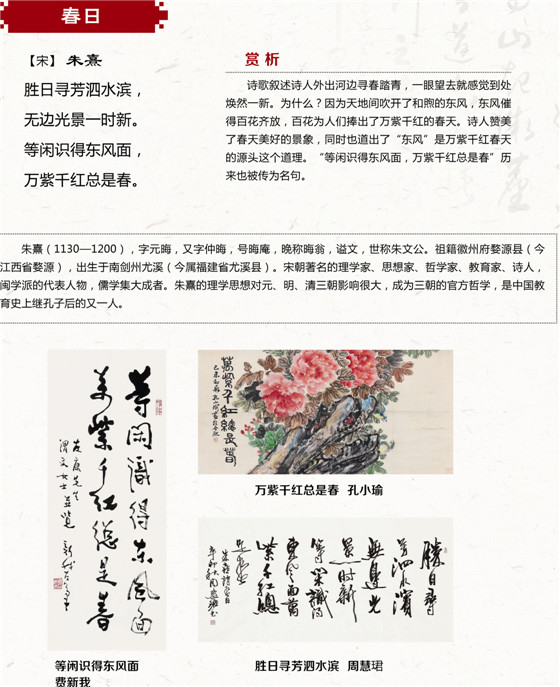 春日
【宋】 朱熹
胜日寻芳泗水滨，
无边光景一时新。
等闲识得东风面，
万紫千红总是春。
赏 析
诗歌叙述诗人外出河边寻春踏青，一眼望去就感觉到处
焕然一新。为什么？因为天地间吹开了和煦的东风，东风催
得百花齐放，百花为人们捧出了万紫千红的春天。诗人赞美
了春天美好的景象，同时也道出了“东风”是万紫千红春天
的源头这个道理。“等闲识得东风面，万紫千红总是春”历
来也被传为名句。
朱熹（1130—1200），字元晦，又字仲晦，号晦庵，晚称晦翁，谥文，世称朱文公。祖籍徽州府婺源县（今
江西省婺源），出生于南剑州尤溪（今属福建省尤溪县）。宋朝著名的理学家、思想家、哲学家、教育家、诗人，
闽学派的代表人物，儒学集大成者。朱熹的理学思想对元、明、清三朝影响很大，成为三朝的官方哲学，是中国教
育史上继孔子后的又一人。
等闲識得东风面
万紫千红總是春
萬紫千红總是春
万紫千红总是春 孔小瑜
勝日尋
芳泗水濱
無邊光
景一时新
等闲識得
東风面萬
紫千红總
是春
等闲识得东风面
费新我
胜日寻芳泗水滨 周慧珺